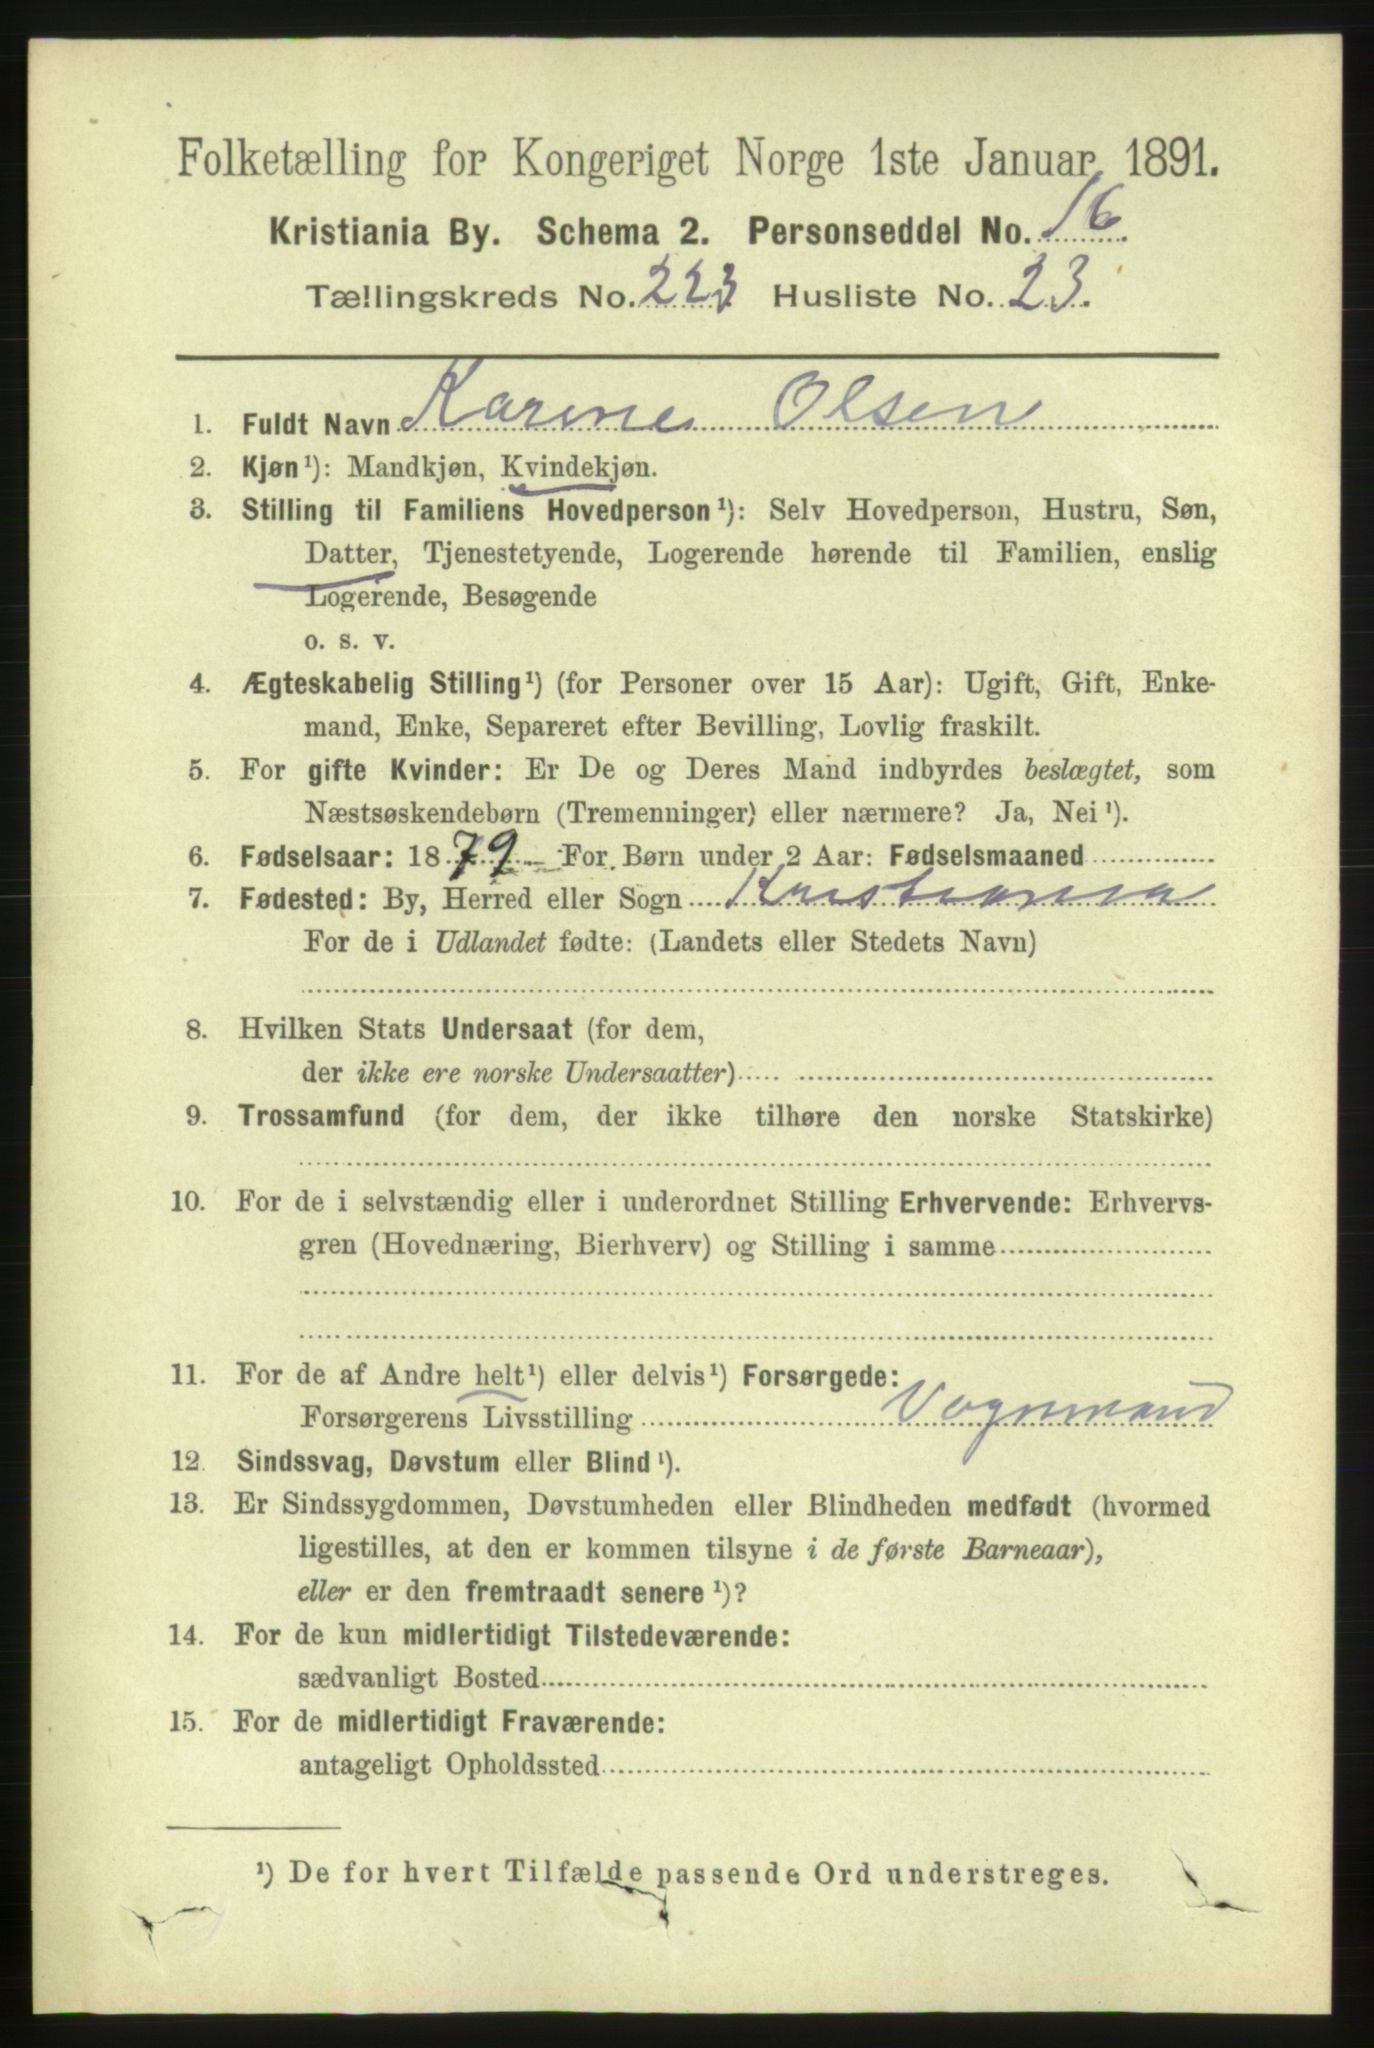 Folketælling for Kongeriget Norge 1ste Januar 1891.
Kristiania By. Schema 2. Personseddel No. 16
Tællingskreds No. 223 Husliste No. 23.
1. Fuldt Navn Karine Olsen
2. Kjøn¹): Mandkjøn, Kvindekjøn.
3. Stilling til Familiens Hovedperson¹): Selv Hovedperson, Hustru, Søn,
Datter, Tjenestetyende, Logerende hørende til Familien, enslig
Logerende, Besøgende
o. s. v.
4. Ægteskabelig Stilling¹) (for Personer over 15 Aar): Ugift, Gift, Enke-
mand, Enke, Separeret efter Bevilling, Lovlig fraskilt.
5. For gifte Kvinder: Er De og Deres Mand indbyrdes beslægtet, som
Næstsøskendebørn (Tremenninger) eller nærmere? Ja, Nei¹).
6. Fødselsaar: 1879 For Børn under 2 Aar: Fødselsmaaned
7. Fødested: By, Herred eller Sogn Kristiania
For de i Udlandet fødte: (Landets eller Stedets Navn)
8. Hvilken Stats Undersaat (for dem,
der ikke ere norske Undersaatter)
9. Trossamfund (for dem, der ikke tilhøre den norske Statskirke)
10. For de i selvstændig eller i underordnet Stilling Erhvervende: Erhvervs-
gren (Hovednæring, Bierhverv) og Stilling i samme
11. For de af Andre helt¹) eller delvis¹) Forsørgede:
Forsørgerens Livsstilling Vognmand
12. Sindssvag, Døvstum eller Blind¹).
13. Er Sindssygdommen, Døvstumheden eller Blindheden medfødt (hvormed
ligestilles, at den er kommen tilsyne i de første Barneaar),
eller er den fremtraadt senere¹)?
14. For de kun midlertidigt Tilstedeværende:
sædvanligt Bosted
15. For de midlertidigt Fraværende:
antageligt Opholdssted
¹) De for hvert Tilfælde passende Ord understreges.